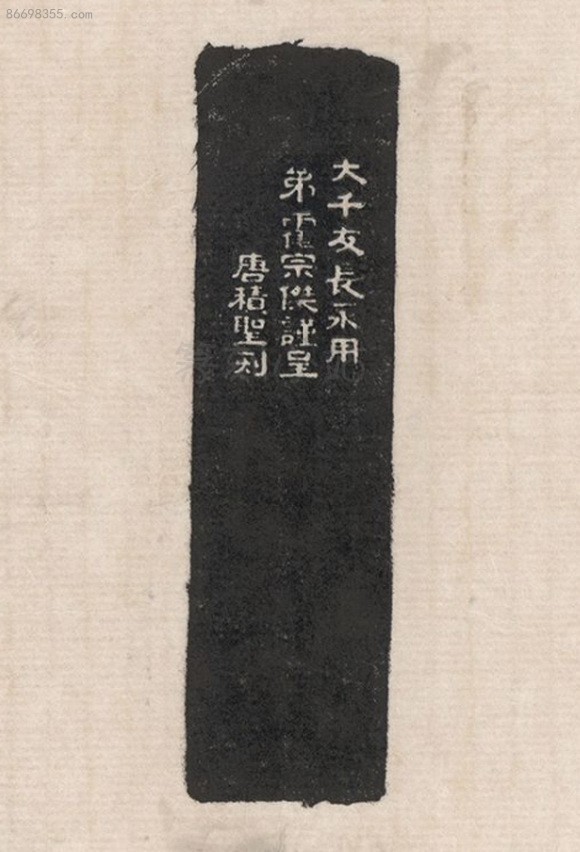 86698355.com
大千友長永用
弟霍宗傑謹呈
唐積聖刻